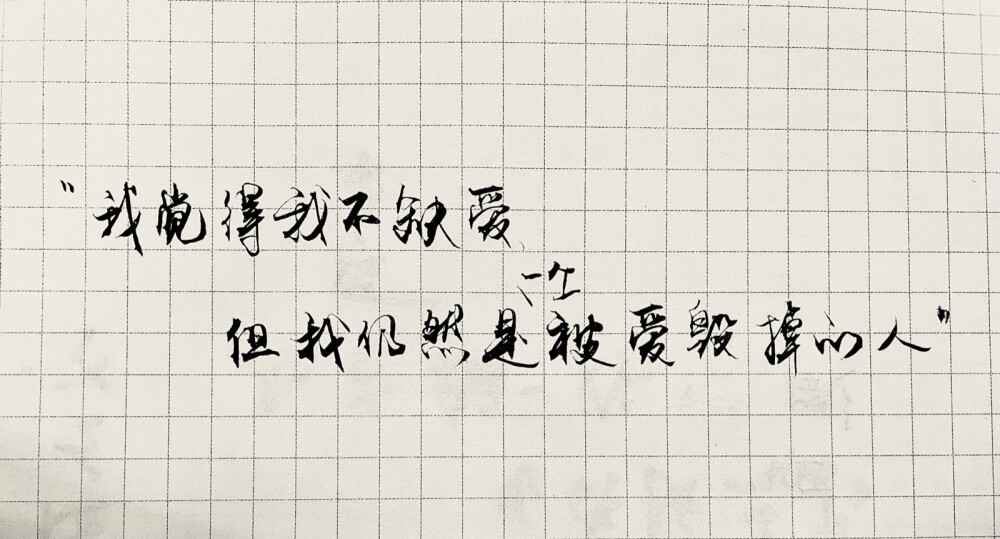 "我觉得我不缺爱，
但我仍然是一个被爱毁掉的人"